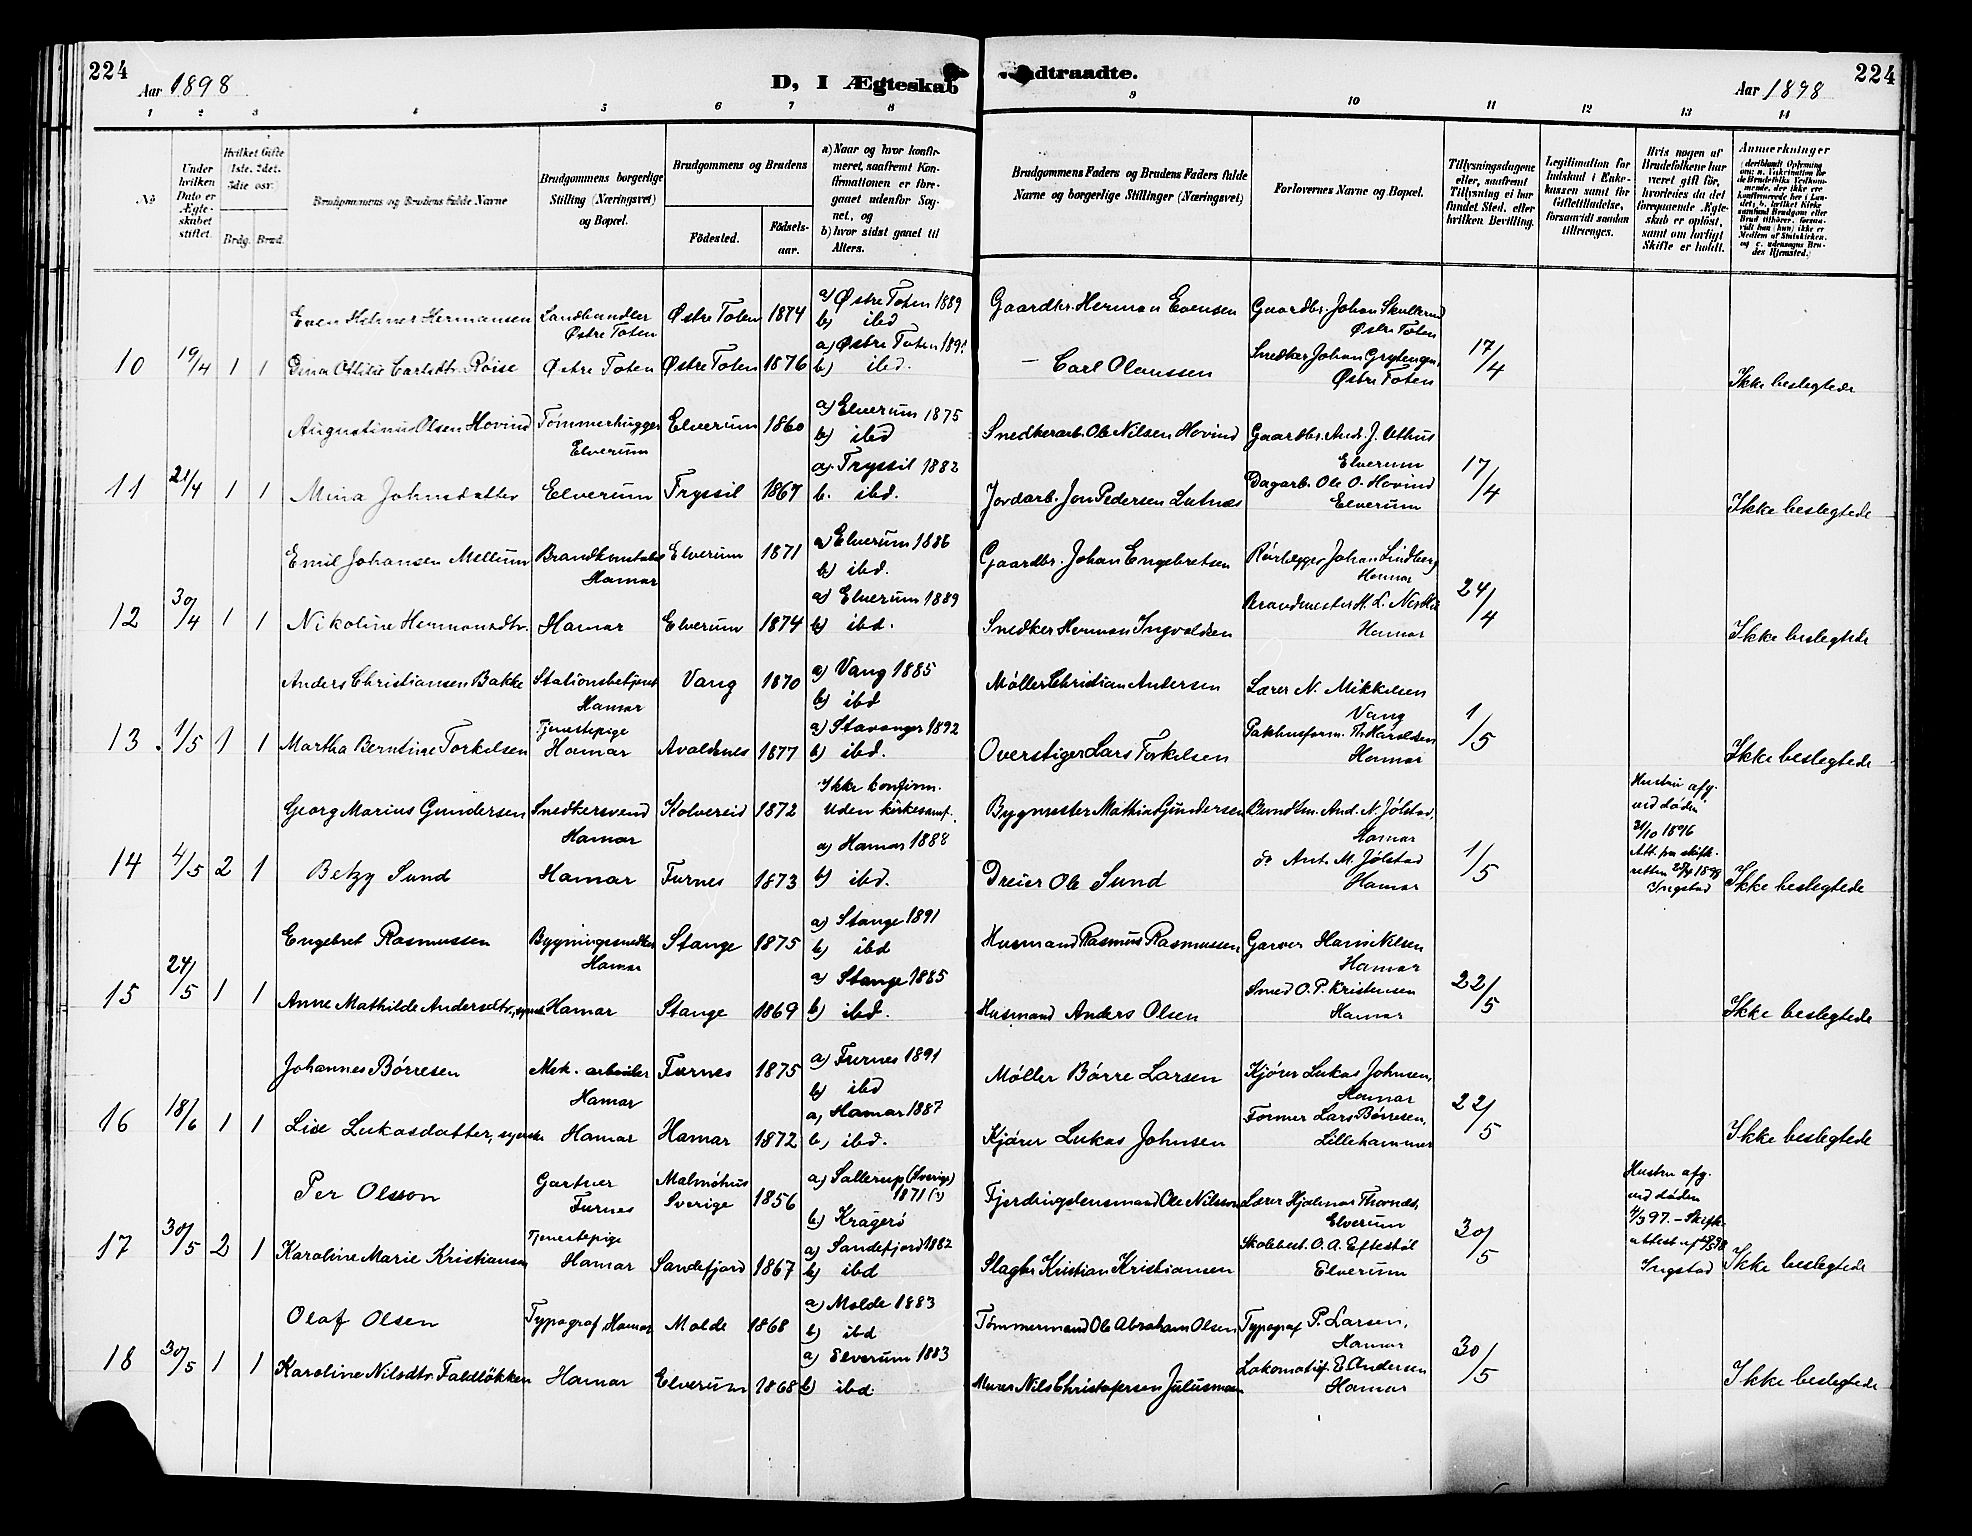 224
Aar 1898
D, I Ægteskab
ndtraadte.
Aar 1898
224
1 2 3 4 5 6 7 8 9 10 11 12 13 14
№
Under hvilken Dato er Ægteskabet stiftet.
Hvilket Gifte 1ste. 2det. 3die osv.
Brdg. Brud.
Brudgommens og Brudens fulde Navne
Brudgommens borgerlige Stilling (Næringsvei) og Bopæl.
Brudgommens og Brudens
Fødested.
Fødselsaar.
a) Naar og hvor konfirmeret, saafremt Konfirmationen er foregaaet udenfor Sognet, og
b) hvor sidst gaaet til Alters.
Brudgommens Faders og Brudens Faders fulde Navne og borgerlige Stillinger (Næringsvei)
Forlovernes Navne og Bopæl.
Tillysningsdagene eller, saafremt Tillysning ei har fundet Sted, efter hvilken Bevilling.
Legitimation for Indskud i Enkekassen samt for Giftetilladelse, forsaavidt saadan tiltrænges.
Hvis nogen af Brudefolkene har været gift før, hvordenes da det foregaaende Ægteskab er opløst, samt om lovligt Skifte er holdt.
Anmærkninger
Even Helmer Hermansen Landhandler Østre Toten Østre Toten 1874 a) Østre Toten 1889 b) ibd Gaardbr. Herman Evensen Gaardbr. Johan Østre Toten
10 19/4 1 1 Dina Carlsdtr. Røise Østre Toten Østre Toten 1876 a) Østre Toten b) ibd. — Carl Olaussen Snedker Johan Østre Toten 17/4 Ikke beslegtede
Augustinus Olsen Hovind Tømmerhugger Elverum Elverum 1860 a) Elverum 1875 b) ibid Snedkerarb. Ole Nilsen Hovind Gaardbr. And. J. Uthus Elverum
11 21/4 1 1 Mina Johnsdatter Elverum Tryssil 1867 a) Tryssil 1882 b. ibd. Jordarb. Jon Pedersen Lutnæs Dagarb. Ole O. Hovind Elverum 17/4 Ikke beslegtede
Emil Johansen Mellum Brandkonstabel Hamar Elverum 1871 a) Elverum 1886 b) ibd. Gaardbr. Johan Engebretsen Rørlægger Johan Lindberg Hamar
12 30/4 1 1 Nikoline Hermansdtr. Hamar Elverum 1874 a) Elverum 1889 b) ibd. Snedker Herman Ingvaldsen Brandmester H. L. Hamar 24/4 Ikke beslegtede
Anders Christiansen Bakke Stationsbetjent Hamar Vang 1870 a) Vang 1885 b) ibd Møller Christian Andersen Lærer N. Mikkelsen Vang
13. 1/5 1 1 Martha Berntine Torkelsen Tjenestepige Hamar Avaldsnes 1877 a) Stavanger 1892 b) ibd. Overstiger Lars Torkelsen Pakhusform. Th. Haraldsen Hamar 1/5 Ikke beslegtede
Georg Marius Gundersen Snedkersvend Hamar Kolvereid 1872 Ikke konfirm. Uden kirkesamf. Bygmester Mathias Gundersen Bundtm. And. N. Jølstad, Hamar
14 4/5 2 1 Betzy Sund Hamar Furnes 1873 a) Hamar 1888 b) ibd. Dreier Ole Sund do Ant. M. Jølstad Hamar 1/5 Hustru afg. ved døden 31/10 1896 Att. fra skifteretten 1898 Ingstad Ikke beslegtede
Engebret Rasmussen Bygningssnedker Hamar Stange 1875 a) Stange 1891 b) ibd Husmand Rasmus Rasmussen Garver Hans Nilsen Hamar
15 24/5 1 1 Anne Mathilde Andersdtr., Hamar Stange 1869 a) Stange 1885 b) ibd. Husmand Anders Olsen Smed O. P. Kristensen Hamar 22/5 Ikke beslegtede
Johannes Børresen Mek. arbeider Hamar Furnes 1875 a) Furnes 1891 b) ibd Møller Børre Larsen Kjører Lukas Johnsen, Hamar
16 18/6 1 1 Lise Lukasdatter, Hamar Hamar 1872 a) Hamar 1887 b) ibd. Kjører Lukas Johnsen Former Lars Børresen, Lillehammer 22/5 Ikke beslegtede
Per Olsson Gartner Furnes Malmöhus Sverige 1856 a) Sallerup (Sverige) 1871 (?) b) Kragerø Fjerdingslensmand Ole Nilsson Lærer Hjalmar Elverum
17 30/5 2 1 Karoline Marie Kristiansen Tjenestepige Hamar Sandefjord 1867 a) Sandefjord 1882 b) ibd Slagter Kristian Kristiansen Skolebest. O. A. Eftestøl Elverum 30/5 Hustru afg. ved døden 97. — Skifteattest af Ingstad Ikke beslegtede
Olaf Olsen Typograf Hamar Molde 1868 a) Molde 1883 b) ibd Tømmermand Ole Abraham Olsen Typograf P. Larsen, Hamar
18 30/5 1 1 Karoline Nilsdtr. Faldløkken Hamar Elverum 1868 a) Elverum 1883 b) ibd. Murer Nils Christofersen Julusmoen Lokomotivf. E. Andersen Hamar 30/5 Ikke beslegtede